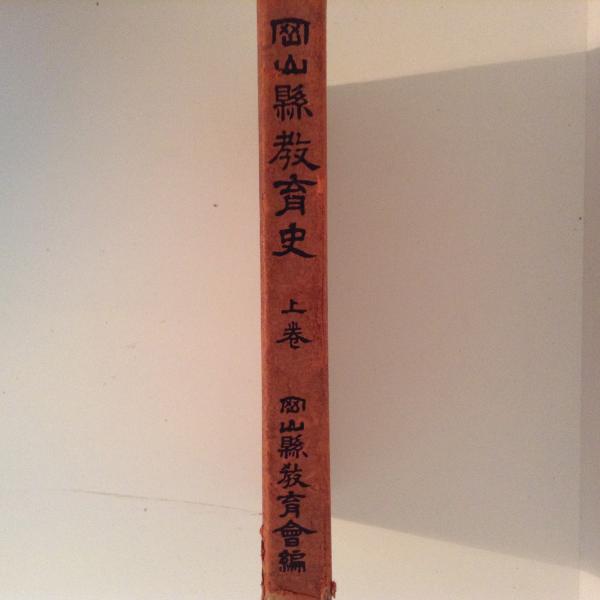 岡山縣教育史
上卷
岡山縣教育會編